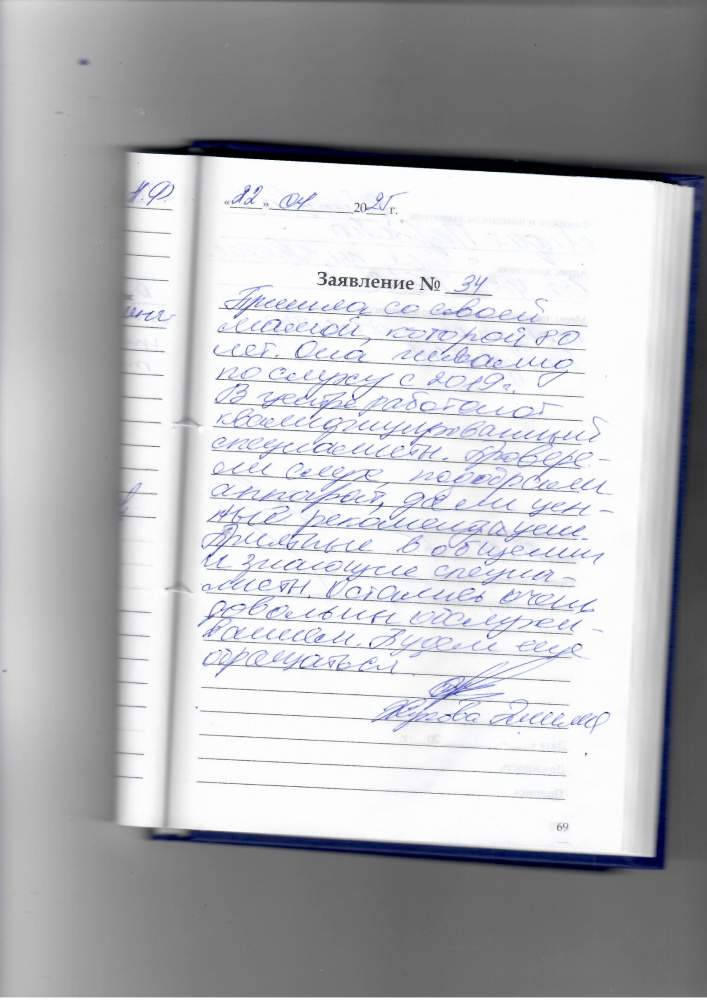 Н.Ф.
«22» 04 2025 г.
Заявление № 34
Пришла со своей
мамой, которой 80
лет. Она инвалид
по слуху с 2019г.
В центре работают
квалифицированный
специалисты. Провере-
ли слух, подобрали
аппарат, дали цен-
ные рекомендации.
Приятные в общении
и знающие специа-
листы. Остались очень
довольны обслужи-
ванием. Будем еще
обращаться.
69